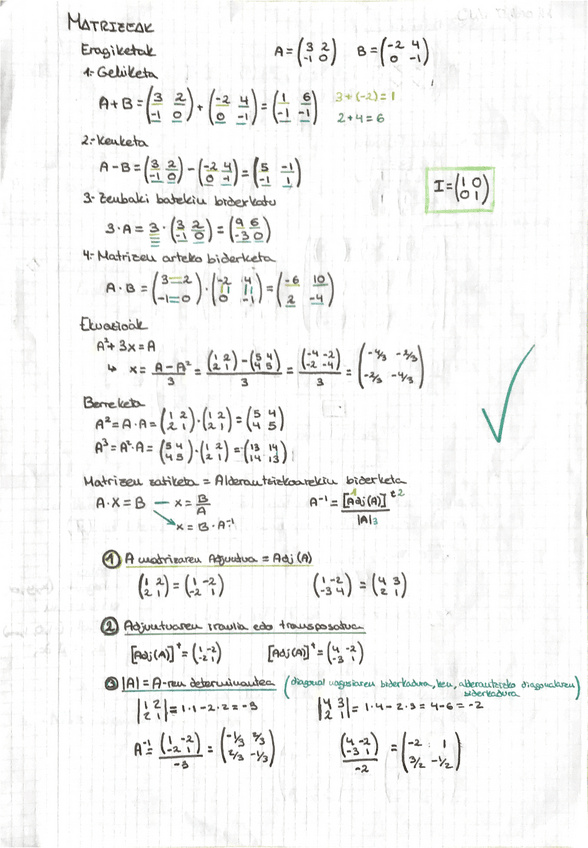 MATRIZEAK
Eragiketak A = (3 2 / -1 0) B = (-2 4 / 0 -1)
1- Gehiketa
A + B = (3 2 / -1 0) + (-2 4 / 0 -1) = (1 6 / -1 -1) 3 + (-2) = 1
2 + 4 = 6
2- Kenketa
A - B = (3 2 / -1 0) - (-2 4 / 0 -1) = (5 -1 / -1 1)
I = (1 0 / 0 1)
3- Zenbaki batekiu biderkatu
3 · A = 3 · (3 2 / -1 0) = (9 6 / -3 0)
4- Matrizeu arteko biderketa
A · B = (3 2 / -1 0) · (-2 4 / 0 -1) = (-6 10 / 2 -4)
Ekuazioak
A² + 3x = A
↳ x = (A - A²)/3 = ((1 2 / 2 1) - (5 4 / 4 5))/3 = (-4 -2 / -2 -4)/3 = (-4/3 -2/3 / -2/3 -4/3)
Berreketa
A² = A · A = (1 2 / 2 1) · (1 2 / 2 1) = (5 4 / 4 5)
A³ = A² · A = (5 4 / 4 5) · (1 2 / 2 1) = (13 14 / 14 13)
Matrizeu zatiketa = Alderantzizkoarekiu biderketa
A · X = B — x = B/A A⁻¹ = [Adj(A)]ᵗ / |A| 1 2 3
→ x = B · A⁻¹
① A matrizareu Adjuutua = Adj(A)
(1 2 / 2 1) = (1 -2 / -2 1) (1 -2 / -3 4) = (4 3 / 2 1)
② Adjuutuareu iraulia edo transposatua
[Adj(A)]ᵗ = (1 -2 / -2 1) [Adj(A)]ᵗ = (4 -2 / -3 1)
③ |A| = A-reu determiuautea (diagoual uagusiareu biderkadura, keu, alderautzizko diagoualareu
biderkadura
|1 2 / 2 1| = 1·1 - 2·2 = -3 |4 3 / 2 1| = 1·4 - 2·3 = 4 - 6 = -2
A⁻¹ = (1 -2 / -2 1)/-3 = (-1/3 2/3 / 2/3 -1/3) (4 -2 / -3 1)/-2 = (-2 1 / 3/2 -1/2)